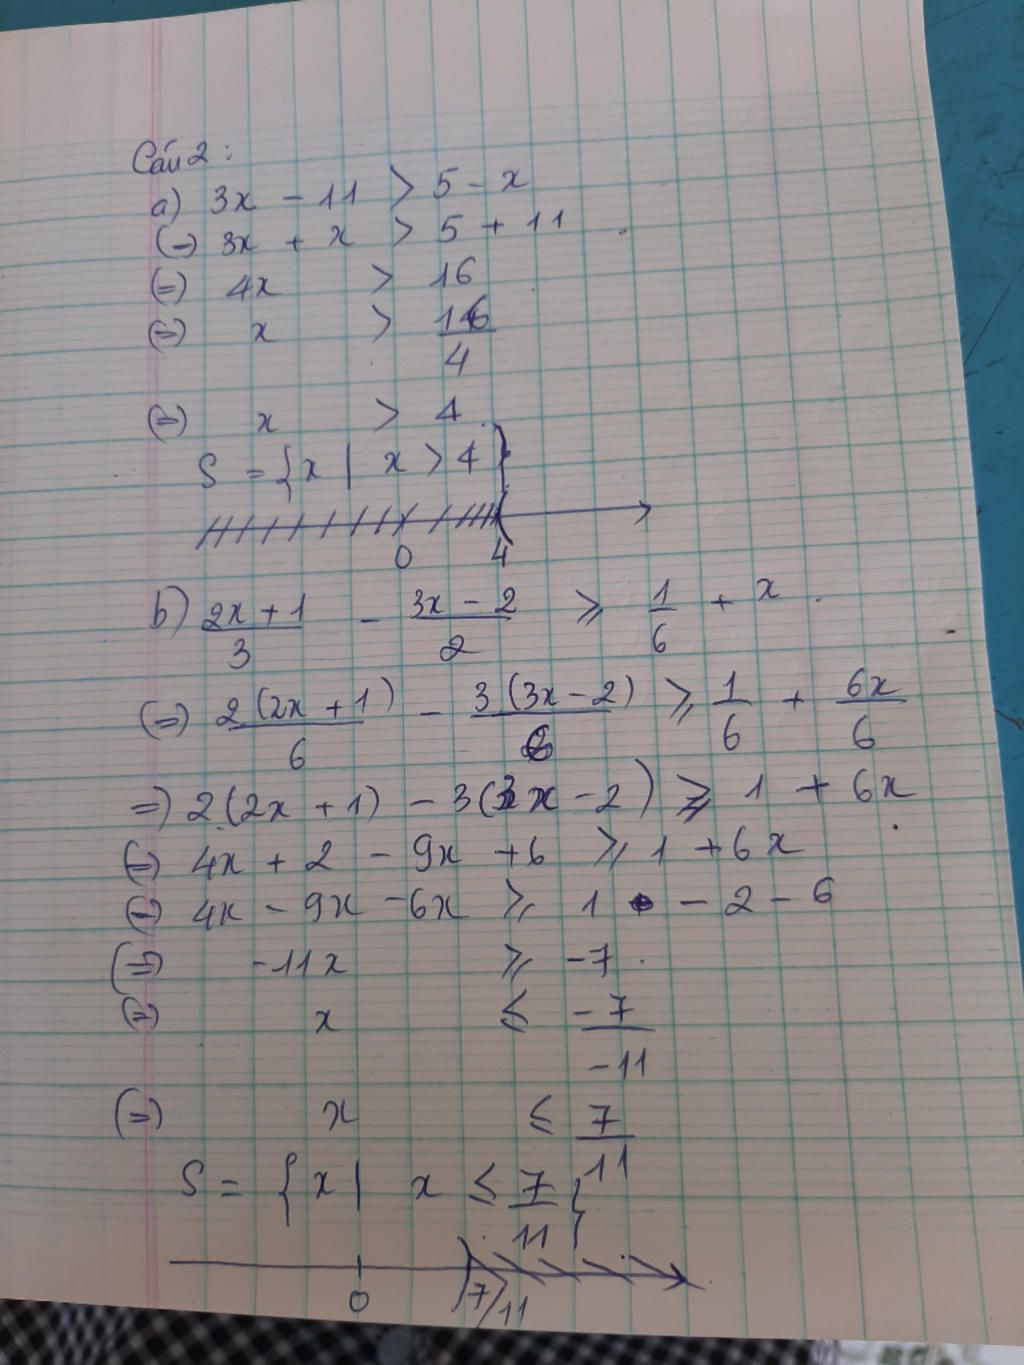 Câu 2 :
a) 3x - 11 > 5 - x
(=) 3x + x > 5 + 11
(=) 4x > 16
(=) x > 16/4
(=) x > 4
S = {x | x > 4}
0 4
b) (2x + 1)/3 - (3x - 2)/2 ⩾ 1/6 + x
(=) 2(2x + 1)/6 - 3(3x - 2)/6 ⩾ 1/6 + 6x/6
=) 2(2x + 1) - 3(3x - 2) ⩾ 1 + 6x
(=) 4x + 2 - 9x + 6 ⩾ 1 + 6x
(=) 4x - 9x - 6x ⩾ 1 - 2 - 6
(=) -11x ⩾ -7
(=) x ≤ -7/-11
(=) x ≤ 7/11
S = {x | x ≤ 7/11}
0 7/11